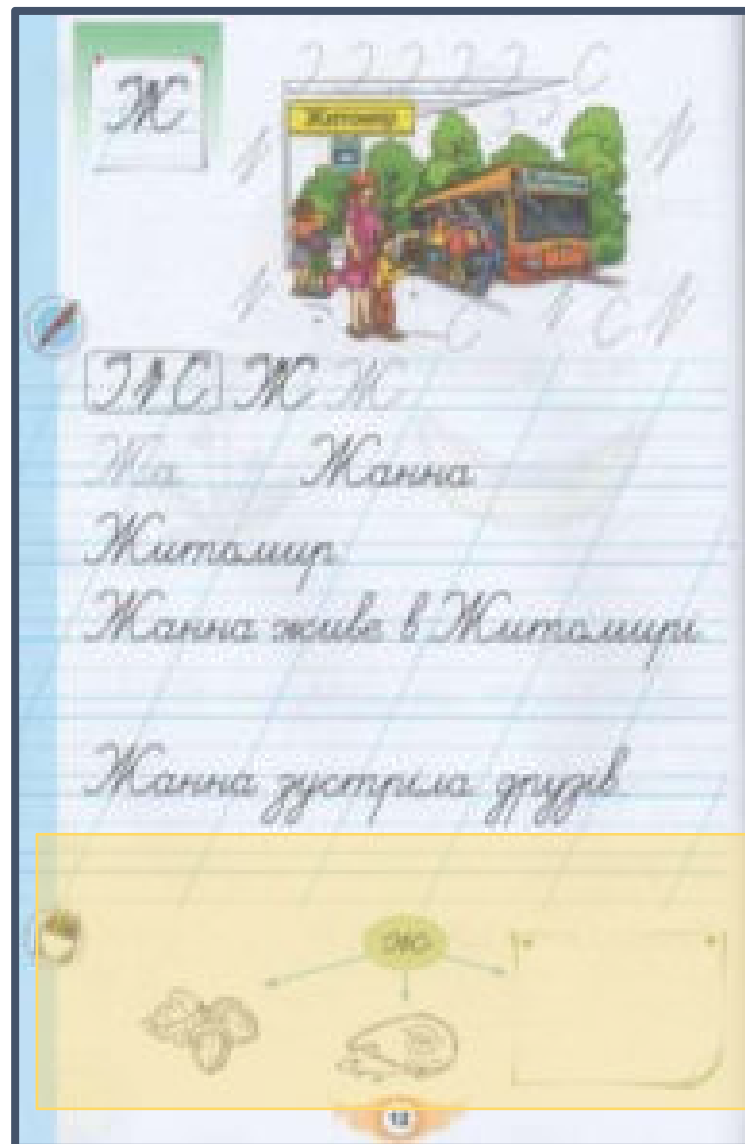 Ж
Житомир
Ж Ж
Жа Жанна
Житомир
Жанна живе в Житомирі
Жанна зустріла друзів
ж
12